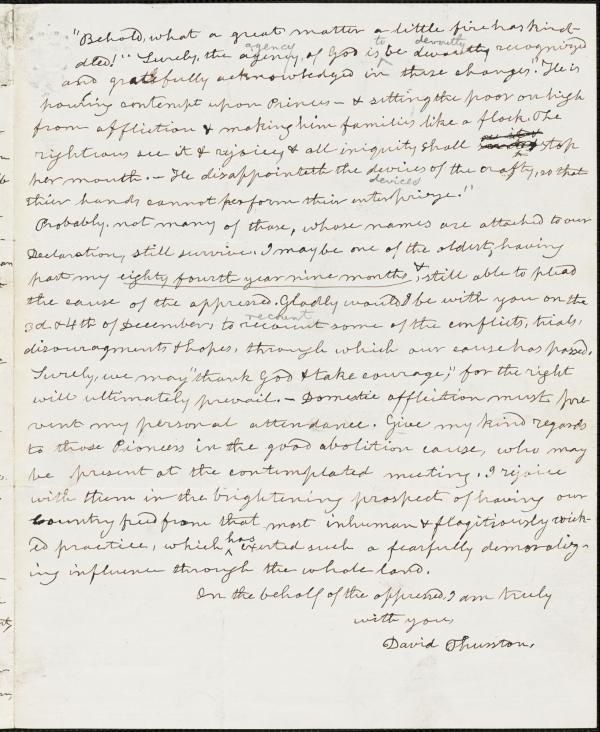 "Behold, what a great matter a little fire has kind-
dled!" Surely, the agency, of God is to be devoutly recognized
and gratefully acknowledged in these changes". "He is
pouring contempt upon Princes - & setting the poor on high
from affliction & making him families like a flock. The
righteous see it & rejoice, & all iniquity shall stop
her mouth. - He disappointeth the devices of the crafty, so that
their hands cannot perform their enterprize."
Probably, not many of those, whose names are attached to our
Declaration, still survive. I may be one of the oldest, having
past my eighty fourth year nine months, & still able to plead
the cause of the oppressed. Gladly would I be with you on the
3d. & 4th of December, to recount some of the conflicts, trials,
disouragments & hopes, through which our cause has passed.
Surely, we may "thank God & take courage," for the right
will ultimately prevail. - Domestic affliction must pre-
vent my personal attendance. Give my kind regards
to those Pioneers in the good abolition cause, who may
be present at the contemplated meeting. I rejoice
with them in the brightening prospect of having our
Country freed from that most inhuman & flagitiously wick-
ed practice, which has exerted such a fearfully demoraliz-
ing influence through the whole land.
In the behalf of the oppressed, I am truly
with you,
David Thurston.